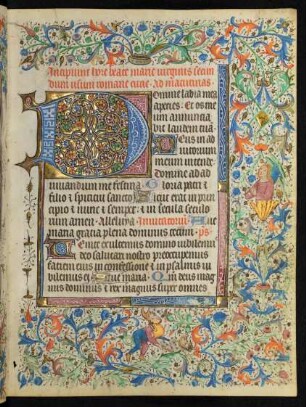 Incipiunt hore beate marie virginis secun
dum usum romane curie. Ad matutinas
Domine labia mea
aperies. Et os me
um annuncia
bit laudem tuã
Deus in ad
iutorium
meum intende
Domine ad ad
iuvandum me festina. Gloria patri et
filio et spiritui sancto. Sicut erat in prin
cipio et nunc et semper. et in secula seculo
rum amen. Alleluya. Invitatoriũ. Ave
maria gracia plena dominus tecum. ps.
Venite exultemus domino iubilemus
deo salutari nostro preoccupemus
faciem eius in confessione et in psalmis iu
bilemus ei. Ave maria. Qm deus mag
nus dominus et rex magnus super omnes